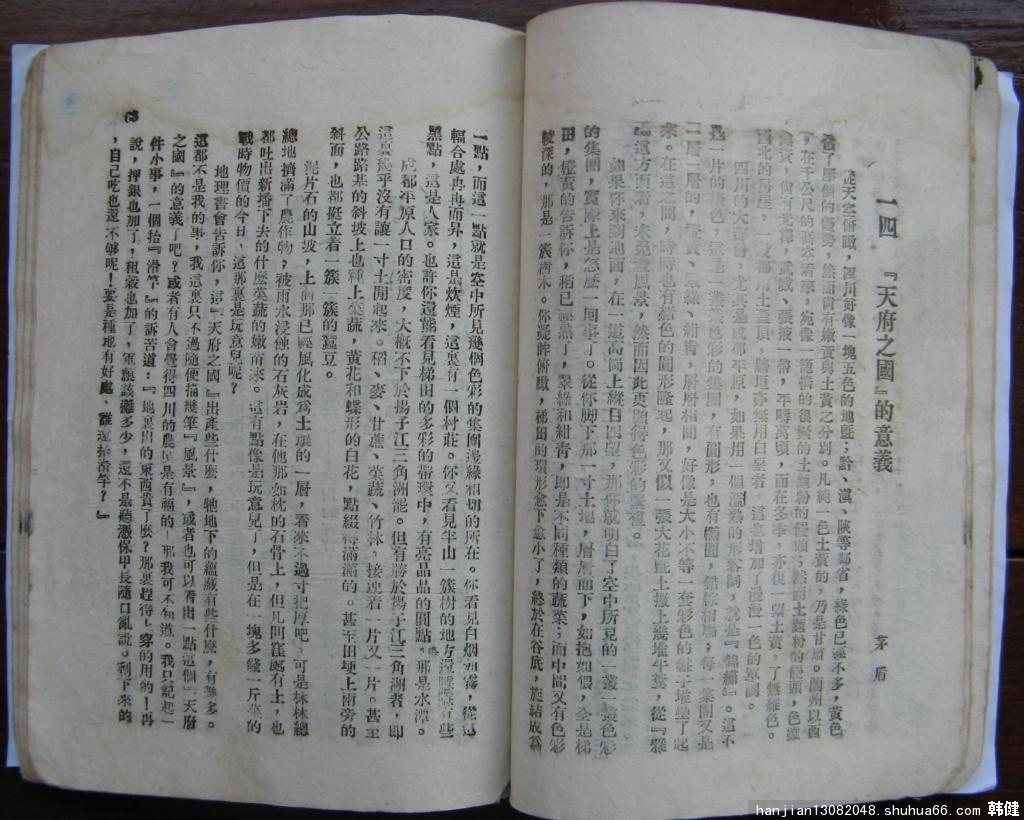 一四　『天府之國』的意義
茅盾
從天空俯瞰，四川好像一塊五色的地氈；黔、滇、陝等鄰省，綠色已經不多，黃色
佔了壓倒的優勢，然而尚有嫩黃與土黃之分別。凡純一色土黃的，乃是甘肅。蘭州以西
，在千公尺的高空看來，宛像一籠擠的很緊的土麵粉的饅頭；然而土麵粉的饅頭，色雖
焦黃，尚有光澤，武威、張掖一帶，平疇萬頃，而在冬季，亦復一望土黃，了無雜色。
西北的房屋，一般都用土蓋頂，牆垣亦無用白堊者，這也增加了漫漫一色的單調。
四川的大部份，尤其是成都平原，如果用一個濫熟的形容詞，就是『錦繡』。這不
是一片的綠色，這是一叢叢色彩的集團，有圓形，也有橢圓，錯綜相屬；每一集團又是
一層一層的，橙黃、翠綠、紺靑，層層相間，好像是大小不等一套彩色的盤子堆壘了起
來。在這之間，時時也有赭色的圓形隆起，那又似一張大花氈上撒上幾堆牛糞，從『雅
』這方面看，未免殺風景，然而因此更顯得色彩的繁複。
如果你來到地面，在一道高崗上縱目四望，那你就明白了空中所見的一叢一叢色彩
的集團，實際上是怎麼一回事了。從你脚下那一寸土地，層層而下，如抱如偎，全是梯
田，橙黃的告訴你，稻已經熟了，翠綠和紺靑，卽是不同種類的蔬菜；而中間又有色彩
較深的，那是一簇樹木。你凝眸俯瞰，梯田的環形愈下愈小了，終於在谷底，旋結成爲
一點，而這一點就是空中所見幾個色彩的集團邊緣相切的所在。你看見白烟如霧，從這
輻合處冉冉而昇，這是炊煙，這裏有一個村莊。你又看見半山一簇樹的地方還隱隱有些
黑點，這是人家。也許你還能看見梯田的多彩的帶環中，有亮晶晶的圓點，那是水潭。
成都平原人口的密度，大概不下於揚子江三角洲罷。但有勝於揚子江三角湖者，卽
這裏幾乎沒有讓一寸土閒起來。稻、麥、甘蔗、菜蔬、竹林，接連着一片又一片。甚至
公路路基的斜坡上也種上菜蔬，黃花和蝶形的白花，點綴得滿滿的。甚至田埂上兩旁的
斜面，也都挺立着一簇一簇的蠶豆。
泥片石的山坡，上面那已經風化成爲土壤的一層，看來不過寸把厚吧，可是林林總
總地擠滿了農作物；被雨水浸蝕的石灰岩，在他那如枕的石骨上，但凡間窪處有土，也
都吐出新播下去的什麼菜蔬的嫩芽來。這有點像是玩意兒了，但是在一塊多錢一斤菜的
戰時物價的今日，這那裏是玩意兒呢？
地理書會告訴你，這『天府之國』出產些什麼，牠地下的蘊藏有些什麼，有幾多。
這都不是我的事，我這裏只不過隨便描幾筆『風景』，或者也可以看出一點這個『天府
之國』的意義了吧？或者有人會覺得四川的農民是有福的——那我可不知道。我只記起一
件小事，一個抬『滑竿』的訴苦道：『地裏出的東西貴了麼？那裏趕得上穿的用的！再
說，押銀也加了，租穀也加了，軍糧該攤多少，還不是聽憑保甲長隨口亂說。剩下來的
，自己吃也還不够呢！要是種地有好處，誰還抬滑竿？』
hanjian13082048.shuhua66.com 韩健